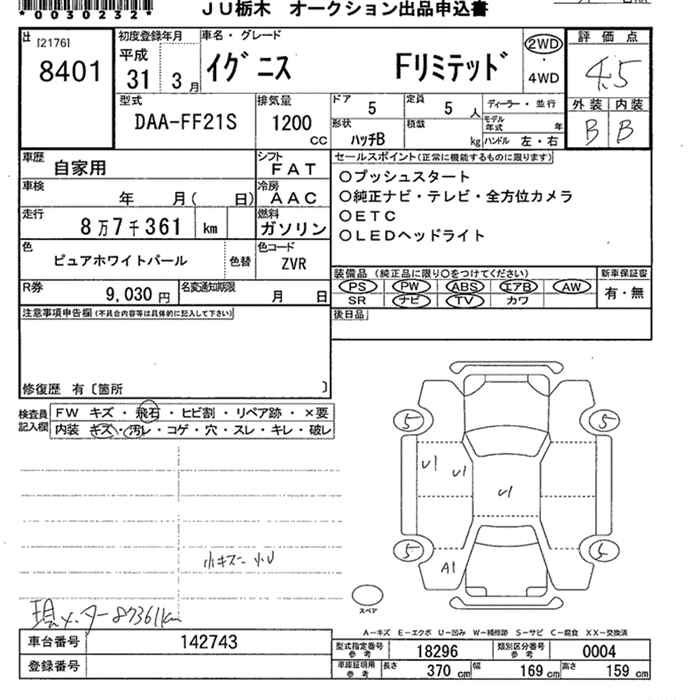 *0030232*
JU栃木 オークション出品申込書
出 [2176] 8401
初度登録年月 平成 31 3月
車名・グレード イグニス Fリミテッド
2WD・4WD
評価点 4.5
外装 内装
B B
型式 DAA-FF21S
排気量 1200 CC
ドア 5
定員 5人
ディーラー・並行
モデル年式 年
形状 ハッチB
積載 kg
ハンドル 左・右
車歴 自家用
シフト FAT
車検 年 月( 日)
冷房 AAC
走行 8万7千361 km
燃料 ガソリン
色 ピュアホワイトパール 色替
色コード ZVR
R券 9,030円
名変通知期限 月 日
セールスポイント(正常に機能するものに限ります)
○プッシュスタート
○純正ナビ・テレビ・全方位カメラ
○ETC
○LEDヘッドライト
装備品 (純正品に限り○をつけてください) 新車保証書
PS PW ABS エアB AW 有・無
SR ナビ TV カワ
後日品
注意事項申告欄(不具合内容等は具体的に記入して下さい)
修復歴 有〔箇所 〕
検査員記入欄
FW キズ・飛石・ヒビ割・リペア跡・×要
内装 キズ・汚レ・コゲ・穴・スレ・キレ・破レ
5 5
U1 U1 U1
5 5
A1
スペア
小キズ 小U
現メーター87361km
A-キズ E-エクボ U-凹み W-補修跡 S-サビ C-腐食 XX-交換済
車台番号 142743
登録番号
型式指定番号 参考 18296
類別区分番号 参考 0004
車庫証明用 参考 長さ 370 cm 幅 169 cm 高さ 159 cm